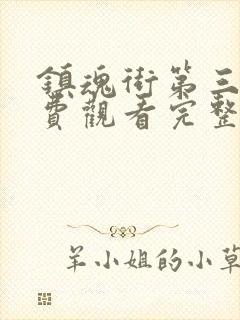 鎮魂街第三
費觀看完整
羊小姐的小草